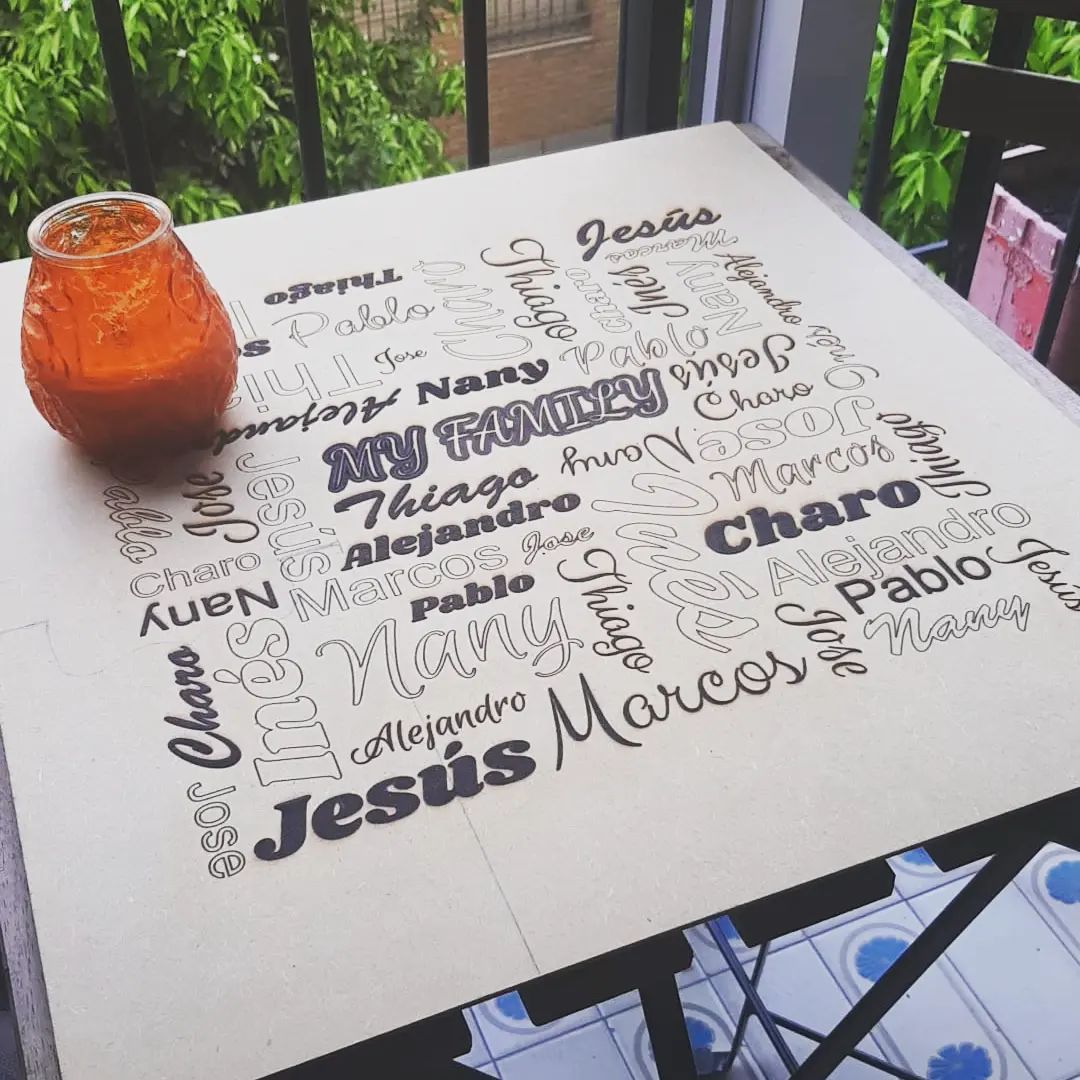 Jesús
Marcos
Thiago
Thiago
Inés
Alejandro
charo
Nany
Charo
Pablo
Jose
Pablo
Inés
Jesús
Jesús
Nany
Charo
Alejand
MY FAMILY
Jose
Thiago
Nany
Marcos
Thiago
Jesús
Jose
Alejandro
Inés
Charo
Thiago
Pablo
Charo
Marcos
Jose
Alejandro
Nany
Pablo
Pablo
Jesús
Inés
Nany
Thiago
Jose
Nany
Charo
Alejandro
Marcos
Jose
Jesús